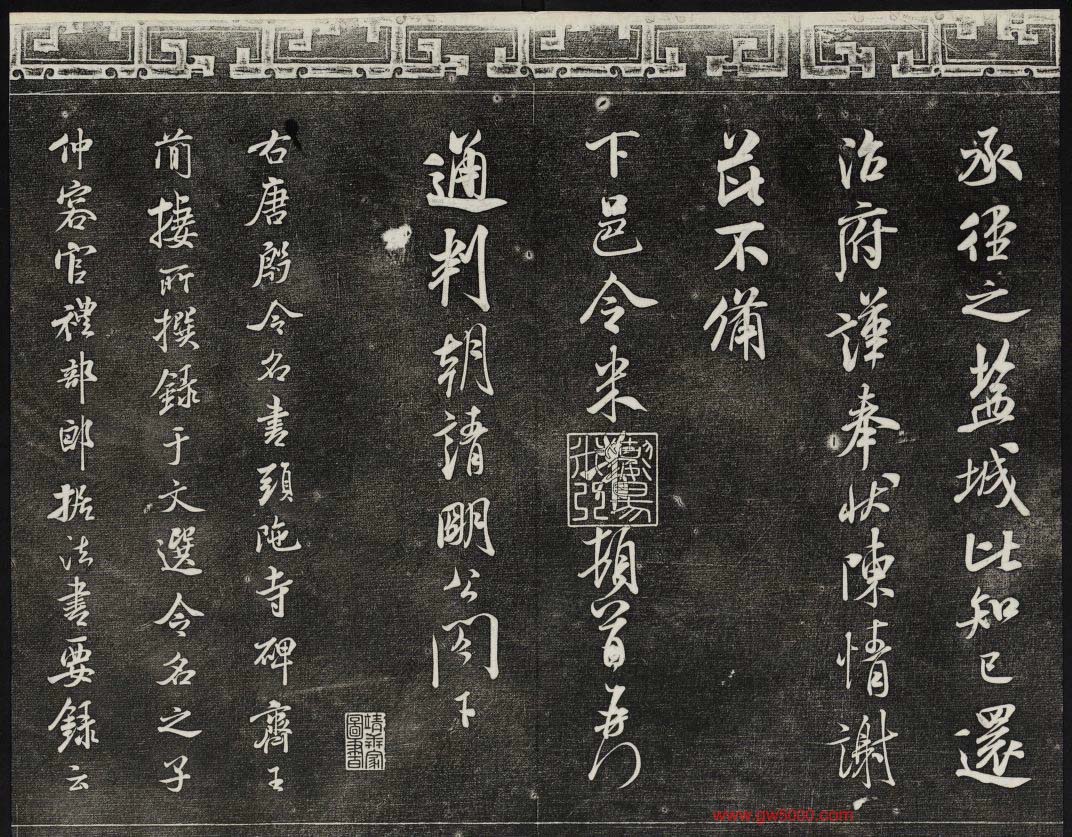 承徑之盐城比知已還
治府謹奉狀陳情謝
芘不備
下邑令米
頓首再拜
通判朝請明公閤下
右唐殷令名書頭陁寺碑齊王
簡棲所撰錄于文選令名之子
仲容官禮部郎据法書要錄云